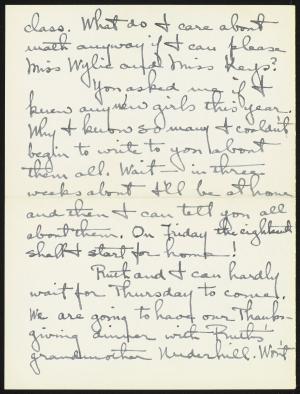 class. What do I care about
math anyway if I can please
Miss Wylie and Miss Keys?
You asked me if I
knew any new girls this year.
Why I know so many I couldn't
begin to write to you about
them all. Wait — in three
weeks about I'll be at home
and then I can tell you all
about them. On Friday the eighteenth
shall I start for home!
Ruth and I can hardly
wait for Thursday to come.
We are going to have our Thanks-
giving dinner with Ruth's
grandmother Underhill. Won't